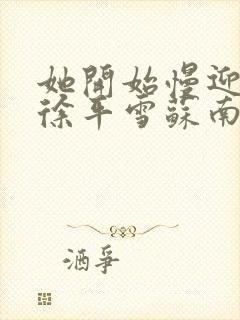 她開始慢迎
徐平雪蘇南
酒爭